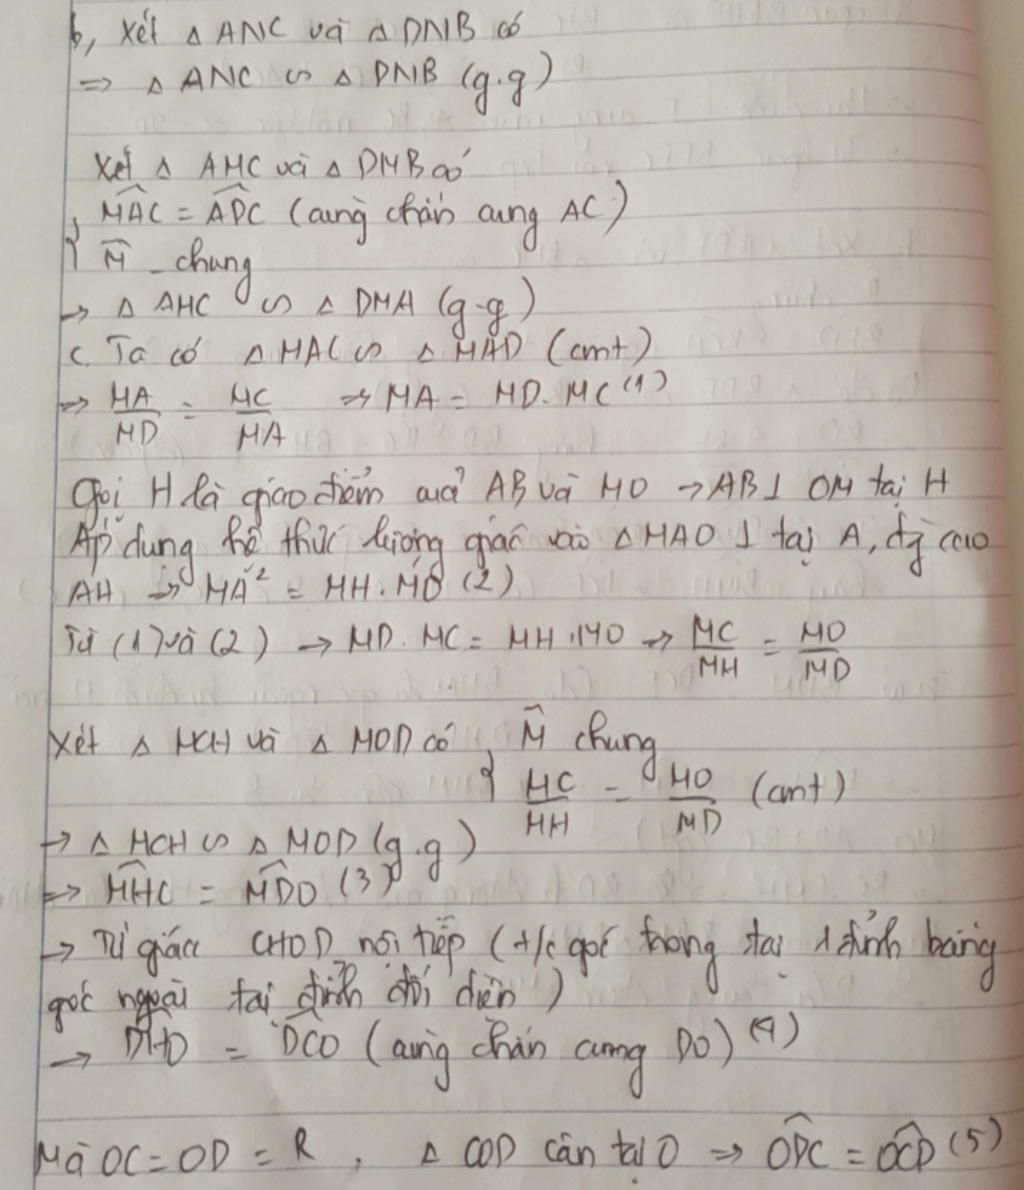 b, Xét Δ ANC và Δ DNB có
=> Δ ANC ∽ Δ DNB (g.g)
Xét Δ AMC và Δ DMB có
{ \widehat{MAC} = \widehat{ADC} (cùng chắn cung AC)
\widehat{M} chung
-> Δ AMC ∽ Δ DMA (g-g)
c. Ta có Δ MAC ∽ Δ MAD (cmt)
=> MA/MD = MC/MA => MA = MD. MC (1)
Gọi H là giao điểm của AB và MO -> AB ⊥ OM tại H
Áp dụng hệ thức lượng giác vào Δ MAO ⊥ tại A, đg cao
AH -> MA² = MH. MO (2)
Từ (1) và (2) -> MD. MC = MH. MO -> MC/MH = MO/MD
Xét Δ MCH và Δ MOD có { \widehat{M} chung
MC/MH = MO/MD (cmt)
-> Δ MCH ∽ Δ MOD (g.g)
=> \widehat{MHC} = \widehat{MDO} (3)
-> Tứ giác CHOD nội tiếp (t/c góc trong tại 1 đỉnh bằng
góc ngoài tại đỉnh đối diện)
-> \widehat{DHO} = \widehat{DCO} (cùng chắn cung DO) (4)
Mà OC = OD = R, Δ COD cân tại O => \widehat{ODC} = \widehat{OCD} (5)